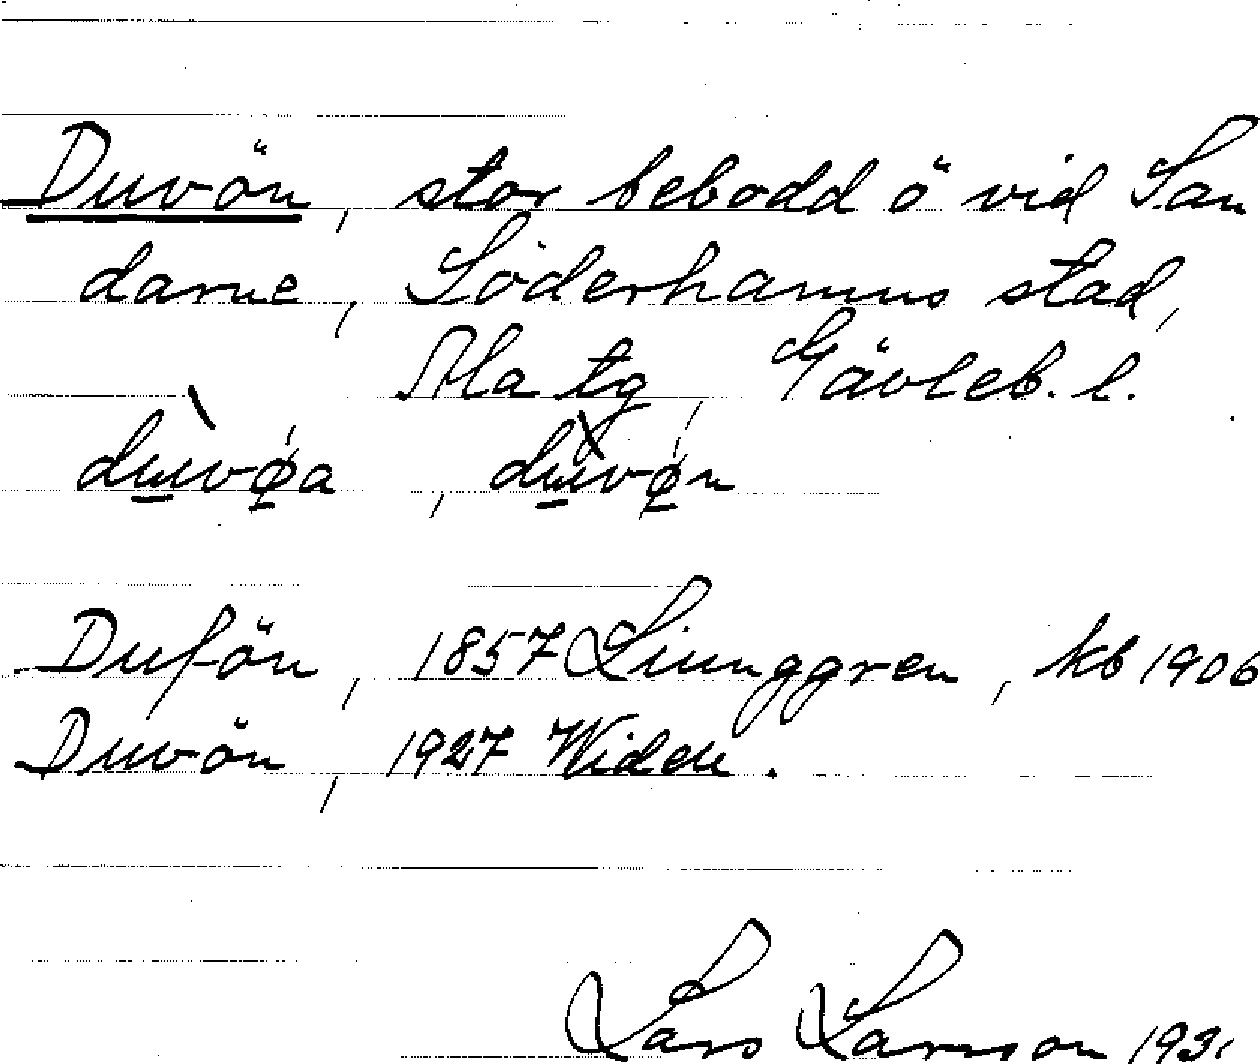 Duvön, stor bebodd ö vid San
darne, Söderhamns stad,
Ala tg, Gävleb. l.
duvøa, duvøn
Dufön, 1857 Liunggren, kb 1906
Duvön, 1927 Widén.
Lars Larsson 193